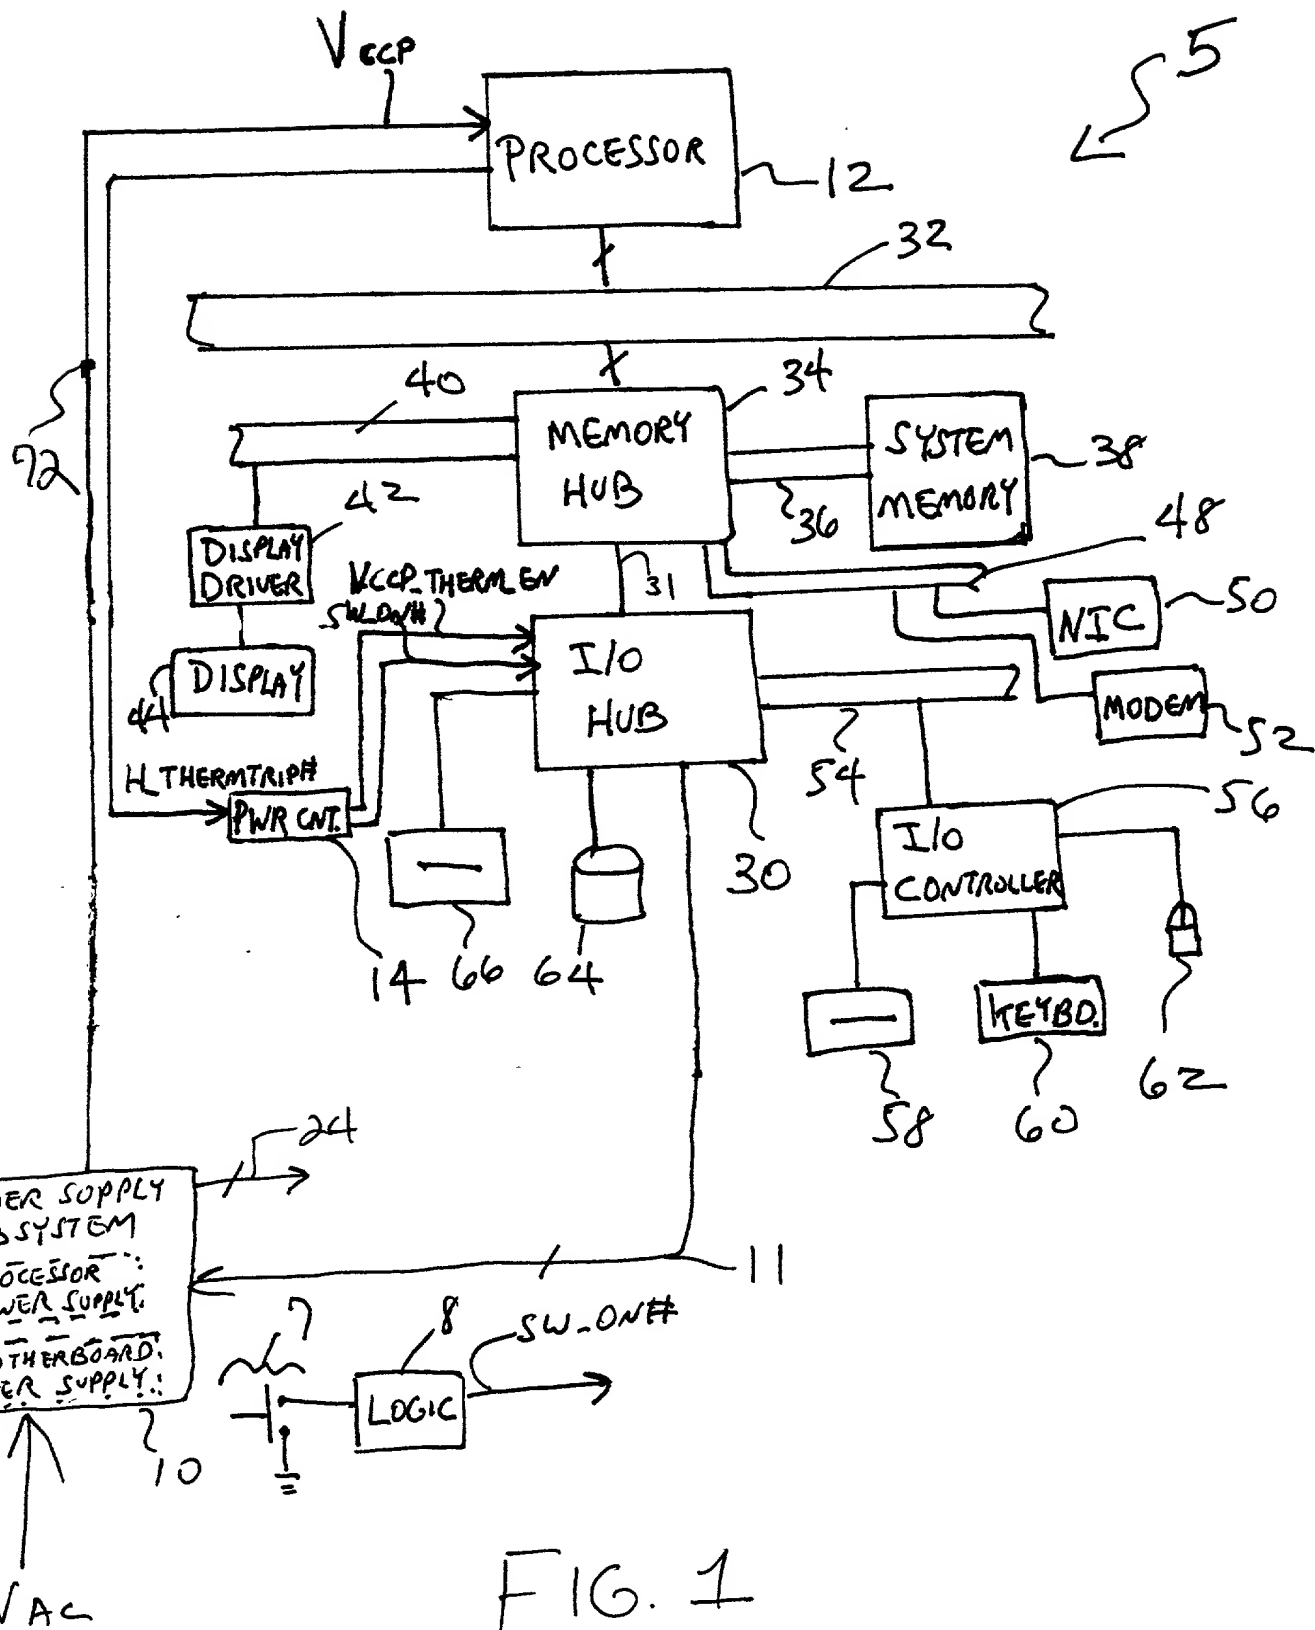 VCCP
5
PROCESSOR
12
32
40
34
MEMORY
HUB
SYSTEM
MEMORY
38
72
42
36
48
DISPLAY
DRIVER
VCCP_THERM_EN
31
NIC
50
I/O
HUB
DISPLAY
44
MODEM
52
54
H_THERMTRIP#
PWR CNT.
56
I/O
CONTROLLER
30
14
66
64
KEYBD.
62
58
60
24
ER SUPPLY
SYSTEM
OCESSOR
WER SUPPLY
11
7
8
SW_ON#
OTHERBOARD
ER SUPPLY
LOGIC
10
VAC
FIG. 1